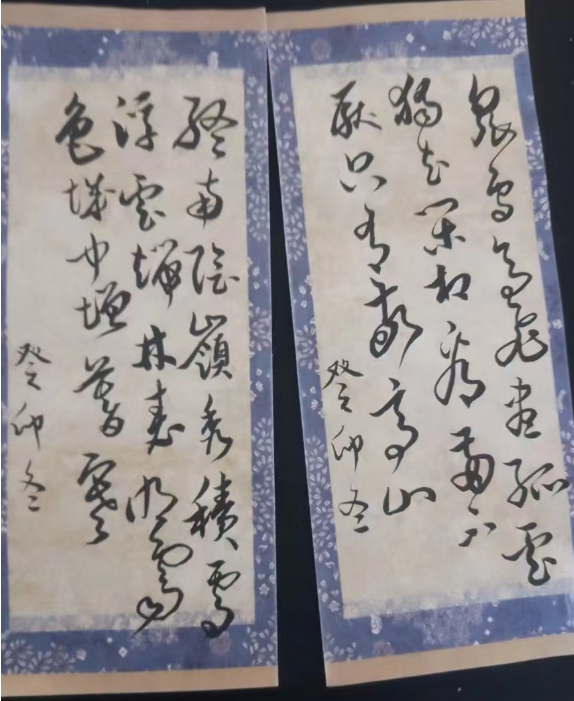 眾鳥高飛盡孤雲
獨去閑相看兩不
厭只有敬亭山
癸卯冬
終南陰嶺秀積雪
浮雲端林表明霽
色城中增暮寒
癸卯冬